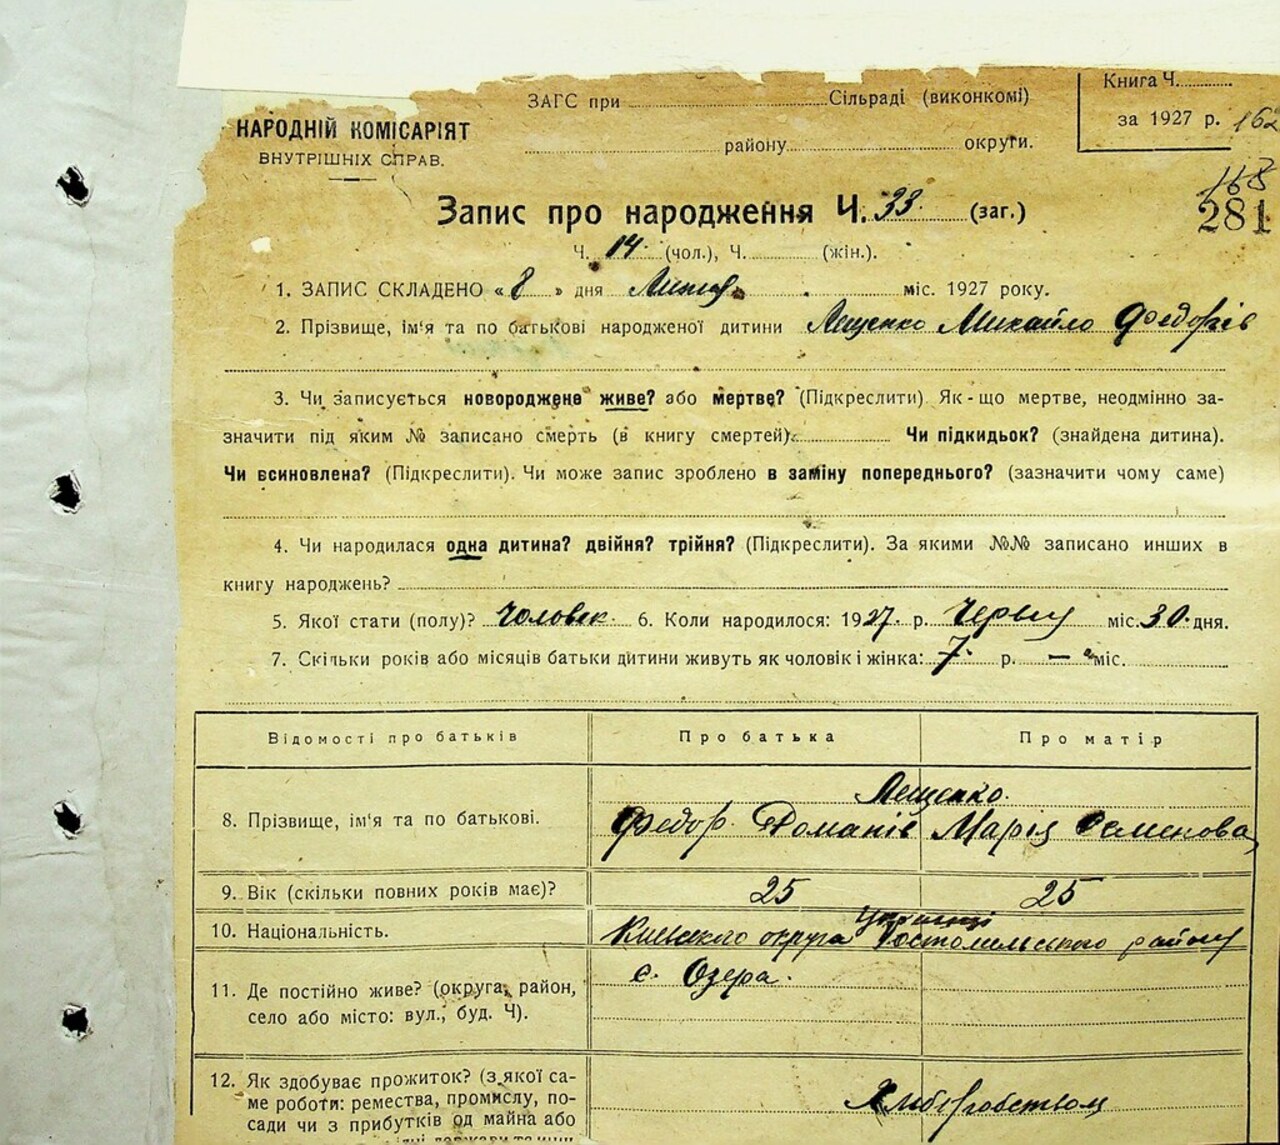 ЗАГС при Сільраді (виконкомі)
Книга Ч.
за 1927 р. 162
НАРОДНІЙ КОМІСАРІЯТ
ВНУТРІШНІХ СПРАВ.
району округи.
168
281
Запис про народження Ч. 33. (заг.)
Ч. 14. (чол.), Ч. (жін.).
1. ЗАПИС СКЛАДЕНО « 8 » дня міс. 1927 року.
2. Прізвище, ім'я та по батькові народженої дитини Лещенко Михайло Федорів
3. Чи записується новороджене живе? або мертве? (Підкреслити). Як-що мертве, неодмінно за-
значити під яким № записано смерть (в книгу смертей). Чи підкидьок? (знайдена дитина).
Чи всиновлена? (Підкреслити). Чи може запис зроблено в заміну попереднього? (зазначити чому саме)
4. Чи народилася одна дитина? двійня? трійня? (Підкреслити). За якими №№ записано инших в
книгу народжень?
5. Якої стати (полу)? Человек. 6. Коли народилося: 1927. р. міс. 30. дня.
7. Скільки років або місяців батьки дитини живуть як чоловік і жінка: 7. р. — міс.
Відомості про батьків Про батька Про матір
Лещенко.
8. Прізвище, ім'я та по батькові. Федор Доманів Марія Семенова
9. Вік (скільки повних років має)? 25 25
Українці
10. Національність. округа Гостомельського району
с. Озера.
11. Де постійно живе? (округа, район,
село або місто: вул., буд. Ч).
12. Як здобуває прожиток? (з якої са-
ме роботи: ремества, промислу, по-
сади чи з прибутків од майна або
Хліборобством